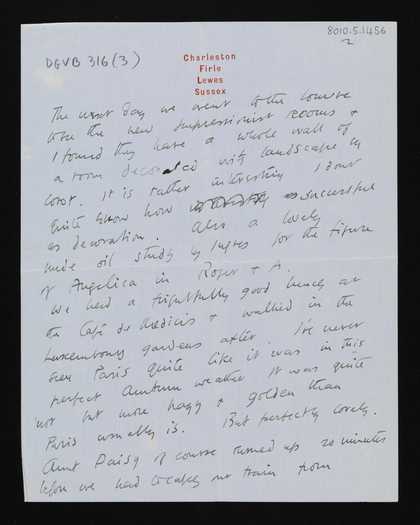 8010.5.1456
2
DGVB 316(3)
Charleston
Firle
Lewes
Sussex
The next day we went to the Louvre
to see the new Impressionist rooms &
I found they have a whole wall of
a room decorated with landscapes by
Corot. It is rather interesting I don't
quite know how successful
as decoration. Also a lovely
nude oil study by Ingres for the figure
of Angelica in Roger & A.
We had a frightfully good lunch at
the Café de Medicis & walked in the
Luxembourg gardens after. I've never
seen Paris quite like it was in this
perfect Autumn weather it was quite
hot but more hazy & golden than
Paris usually is. But perfectly lovely.
Aunt Daisy of course turned up 20 minutes
before we had to catch our train from